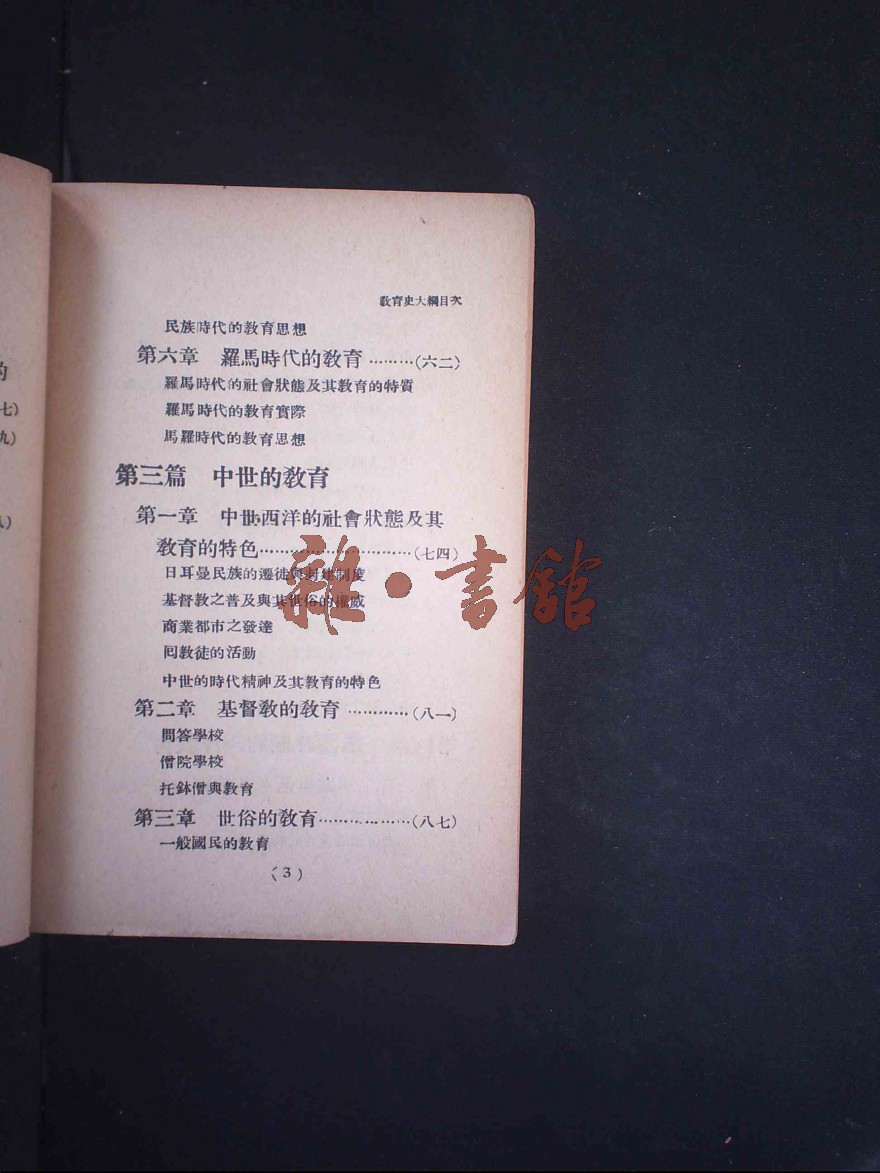 教育史大綱目次
民族時代的教育思想
第六章 羅馬時代的教育………(六二)
羅馬時代的社會狀態及其教育的特質
羅馬時代的教育實際
馬羅時代的教育思想
第三篇 中世的教育
第一章 中世西洋的社會狀態及其
教育的特色…………………………(七四)
日耳曼民族的遷徙與封建制度
基督教之普及與其世俗的權威
商業都市之發達
囘教徒的活動
中世的時代精神及其教育的特色
第二章 基督教的教育…………(八一)
問答學校
僧院學校
托鉢僧與教育
第三章 世俗的教育………………(八七)
一般國民的教育
(3)
的
七)
九)
八)
雜·書館